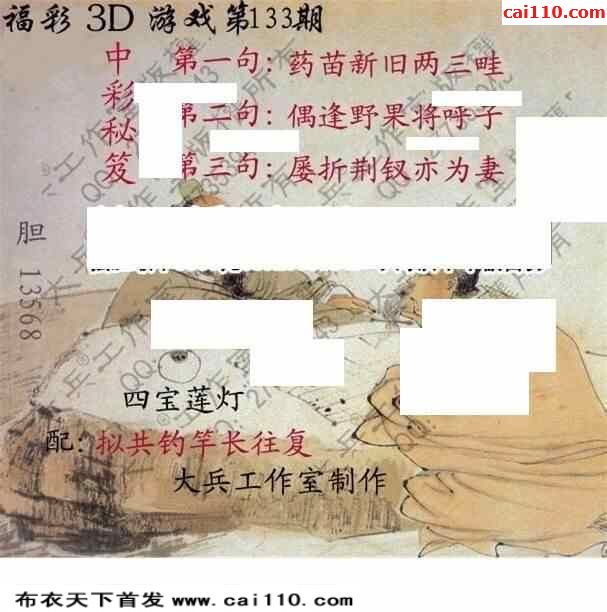 福彩 3D 游戏第133期
cai110.com
中彩秘笈
第一句：药苗新旧两三畦
第二句：偶逢野果将呼子
第三句：屡折荆钗亦为妻
胆 13568
四宝莲灯
配：拟共钓竿长往复
大兵工作室制作
布衣天下首发 www.cai110.com